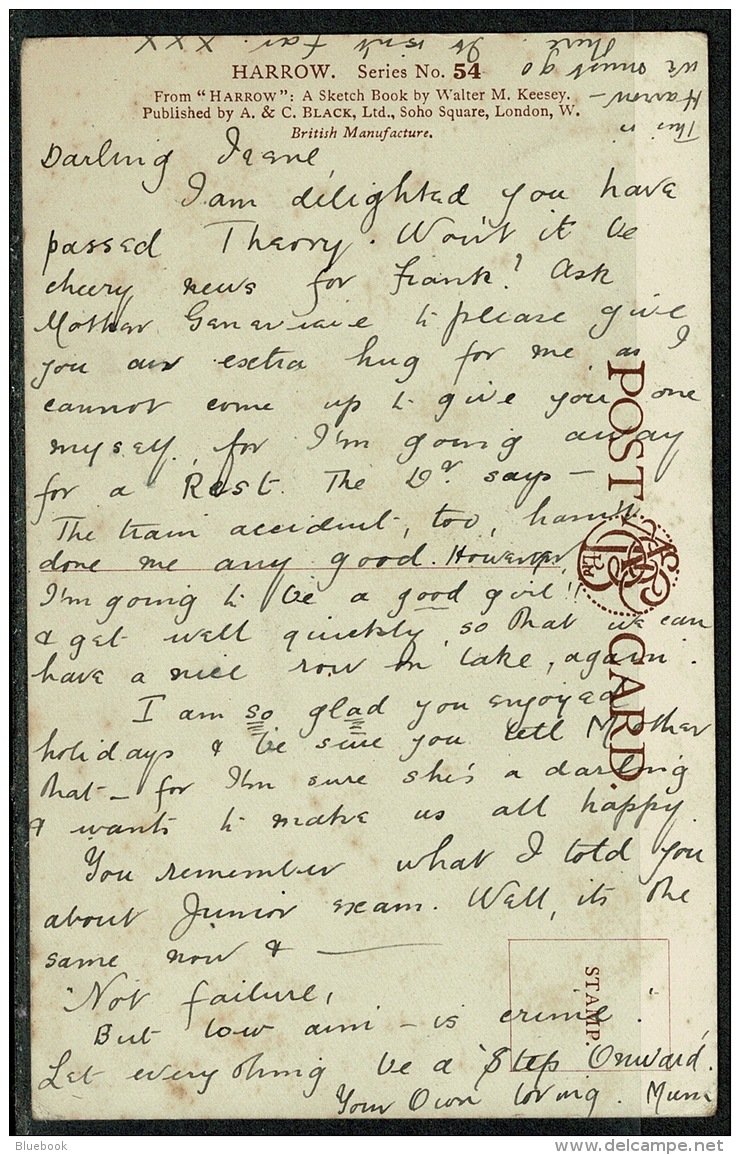 HARROW. Series No. 54
From "HARROW": A Sketch Book by Walter M. Keesey.
Published by A. & C. BLACK, Ltd., Soho Square, London, W.
British Manufacture.
Darling Irene
I am delighted you have
passed Theory. Won't it be
cheery news for Frank? Ask
Mother Genevieve to please give
you an extra hug for me, as I
cannot come up to give you one
myself, for I'm going away
for a Rest. The Dr says —
The train accident, too, hasn't
done me any good. However,
I'm going to be a good girl!!
& get well quickly, so that we can
have a nice row on lake, again.
I am so glad you enjoyed
holidays & be sure you tell Mother
that — for I'm sure she's a darling
& wants to make us all happy.
You remember what I told you
about Junior exam. Well, its the
same now & —
"Not failure,
But low aim — is crime".
Let everything be a 'Step Onward'.
Your Own loving. Mum
This is
Harrow —
we must go
there. It isn't far. XXX
POST CARD.
STAMP.
Bluebook
www.delcampe.net